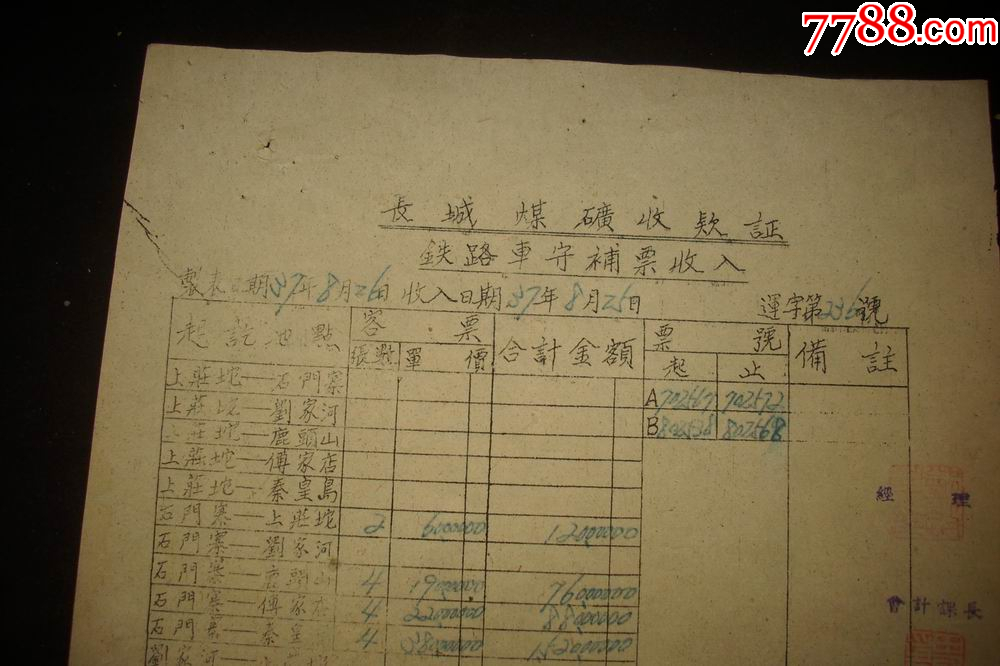 7788.com
長城煤礦收欵証
鉄路車守補票收入
製表日期37年8月26日 收入日期37年8月25日 運字第236號
起訖地點 客票 合計金額 票號 備註
張數 單價 起 止
上莊坨——石門寨 A702567 702572
上莊坨——劉家河 B802538 802568
上莊坨——鹿頭山
上莊坨——傅家店
上莊坨——秦皇島
石門寨——上莊坨 2
石門寨——劉家河
石門寨——鹿頭山 4
石門寨——傅家店 4
石門寨——秦皇 4
劉家河
經理
會計課長